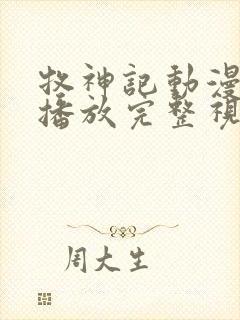 牧神記動漫
播放完整視
周大生